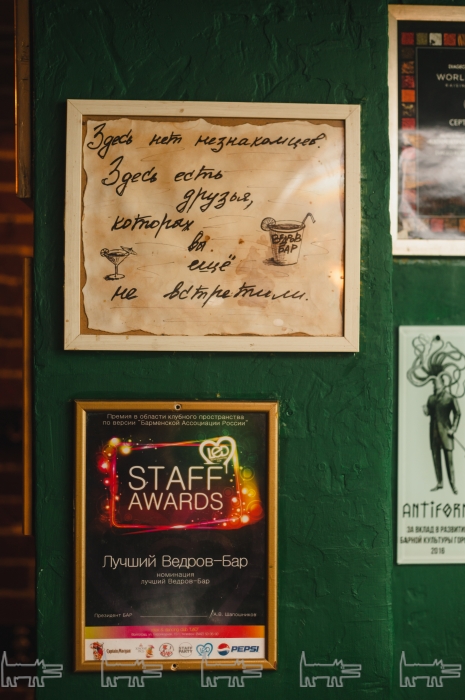 Здесь нет незнакомцев
Здесь есть
друзья,
которых
вы
ещё
не встретили.
ВЕДРОВ
БАР
Премия в области клубного пространства
по версии "Барменской Ассоциации России"
LEO
STAFF
AWARDS
Лучший Ведров-Бар
номинация
лучший Ведров-Бар
Президент БАР
PEPSI
WORL
СЕРТ
ANTIFORM
ЗА ВКЛАД В РАЗВИТИ
БАРНОЙ КУЛЬТУРЫ ГОР
2016